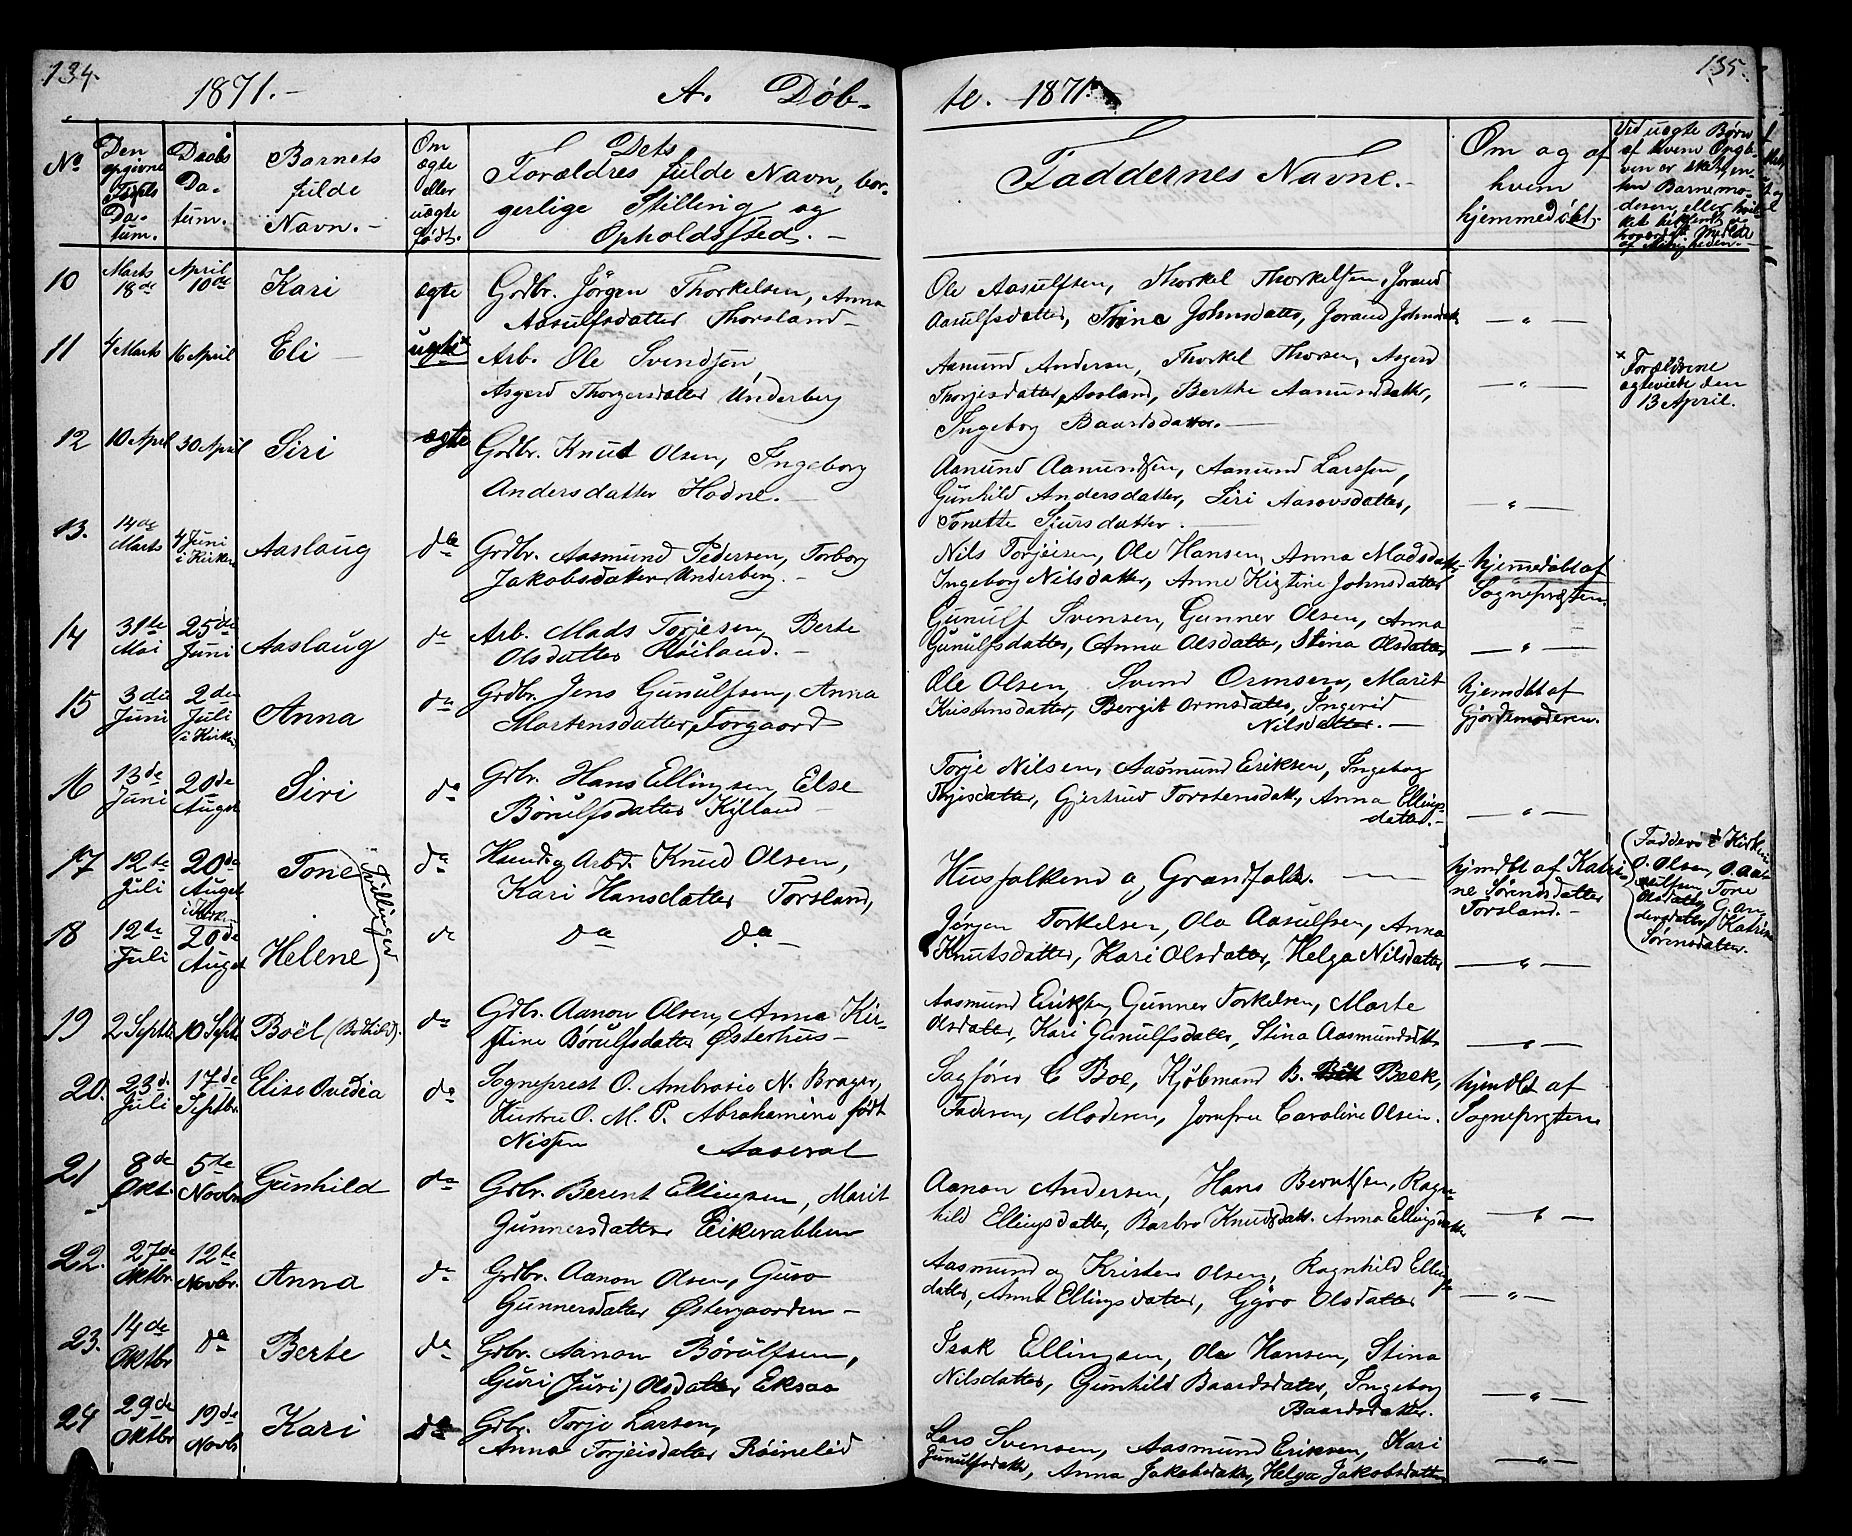 134.
135.
1871.-
A. Døb-
te. 1871.
No
Den opgivne Fødsels Da- tum.
Daabs Da- tum.
Barnets fulde Navn.-
Om ægte eller uægte født.
Dets Forældres fulde Navn, bor- gerlige Stilling og Opholdssted.-
Faddernes Navne.-
Om og af hvem hjemmedøbt.
Ved uægte Børn af hvem Opgi- ven er skeet, en- ten Barnemo- deren eller
af Menigheden.-
10 Marts 18de April 10de Kari ægte Grdbr. Jörgen Thorkelsen, Anna
Aasulfsdatter Thorsland-
Ole Aasulfsen, Thorkel Thorkelsen, Joraud
Aasulfsdatter, Trine Johnsdatter, Joraud Johnsdatt. — " —
11 4 Marts 16 April Eli — uægte Arb. Ole Svendsen,
Asgerd Thorgersdatter Underberg
Aamund Andersen, Thorkel Thorsen, Asgerd
Thorjesdatter Aasland, Berthe Aamundsdatter,
Ingeborg Baardsdatter.—
— " —
x Forældrene ægteviede den 13 April.
12 10 April 30 April Siri ægte Grdbr. Knut Olsen, Ingeborg
Andersdatter Hodne.-
Aanund Aanundsen, Aamund Larssen,
Gunhild Andersdatter, Siri Aasovsdatter,
Tonette Sjursdatter.—
— " —
13. 14de Marts 4 Juni i Kirken Aaslaug do Grdbr. Aasmund Pedersen, Torborg
Jakobsdatter Underberg.-
Nils Torjeisen, Ole Hansen, Anna Madsdatter
Ingeborg Nilsdatter, Anne Kistine Johnsdatter
hjemmedøbt af Sognepræsten.
14 31te Mai 25de Juni Aaslaug do Arb. Mads Torjesen, Berte
Olsdatter Röiland.-
Gunulf Svensen, Gunner Olsen, Anna
Gunulfsdatter, Anna Olsdatter, Stina Olsdatter — " —
15 3die Juni 2den Juli i Kirken Anna do Grdbr. Jens Gunulfsen, Anna
Martensdatter, Torgaard
Ole Olsen, Svend Ormsen, Marit
Kristensdatter, Bergit Ormsdatter, Ingerid
Nilsdatter.—
hjemdbt af Gjordemoderen.
16 13de Juni 20de August Siri do Gdbr. Hans Ellingsen, Else
Börulfsdatter Kylland—
Torje Nilsen, Aasmund Eriksen, Ingeborg
Torjesdatter, Gjertrud Torstensdatt., Anna Ellings
datter.-
— " —
17 12te Juli 20de August i Kirk. Tone Tvillinger do Husm. og Arbd. Knud Olsen,
Kari Hansdatter Torsland,
Husfolkene og Grandfolk.—
hjmdbt af Katri- ne Sörensdatter Torsland.-
Faddere i Kirken O. Olsen, Tone Olsdatter, G. An- dersdatter, Katrine Sörensdatter.
18 12te Juli 20de August Helene do do do-
Jörgen Torkelsen, Ola Aasulfsen, Anna
Knutsdatter, Kari Olsdatter, Helga Nilsdatter — " —
19 2 Septbr 10 Septbr Boël (Bothild). do Gdbr. Aanon Olsen, Anna Kir-
stine Börulfsdatter Østerhus-
Aasmund Eriksen, Gunner Torkelsen, Marte
Olsdatter, Kari Gunulfsdatter, Stina Aasmundsdttr — " —
20. 23de Juli 17de Septbr. Elise Ovidia do Sogneprest O. Ambrosie N. Brager,
Hustru O. M. P. Abrahamine född
Nissen Aaseral
Sagförer C Boe, Kjöbmand B. Beck,
Faderen, Moderen, Jomfru Caroline Olsen.
hjmdbt af Sognepræsten
21 8de Okt. 5te Novbr Gunhild do Grbr. Berent Ellingsen, Marit
Gunnersdatter Eikerabben
Aanon Andersen, Hans Berntsen, Ragn-
hild Ellingsdatter, Barbro Knudsdatt. Anna Ellingsdatter — " —
22. 27de Oktbr. 12te Novbr. Anna do Grdbr. Aanon Olsen, Guro
Gunnersdatter Østergaarden-
Aasmund og Kristen Olsen, Ragnhild Ellings
datter, Anna Ellingsdatter, Gyro Olsdatter — " —
23. 14de Oktbr do Berte do Gdbr. Aanon Börulfsen,
Guri (Juri) Olsdatter Eksaa
Isak Ellingsen, Ole Hansen, Stina
Nilsdatter, Gunhild Baardsdatter, Ingeborg
Baardsdatter.
— " —
24 29de Oktbr 19de Novbr Kari do Gdbr. Torje Larsen,
Anna Torjeisdatter Röinelid
Lars Svensen, Aasmund Eriksen, Kari
Gunulfsdatter, Anna Jakobsdatter, Helga Jakobsdatter — " —